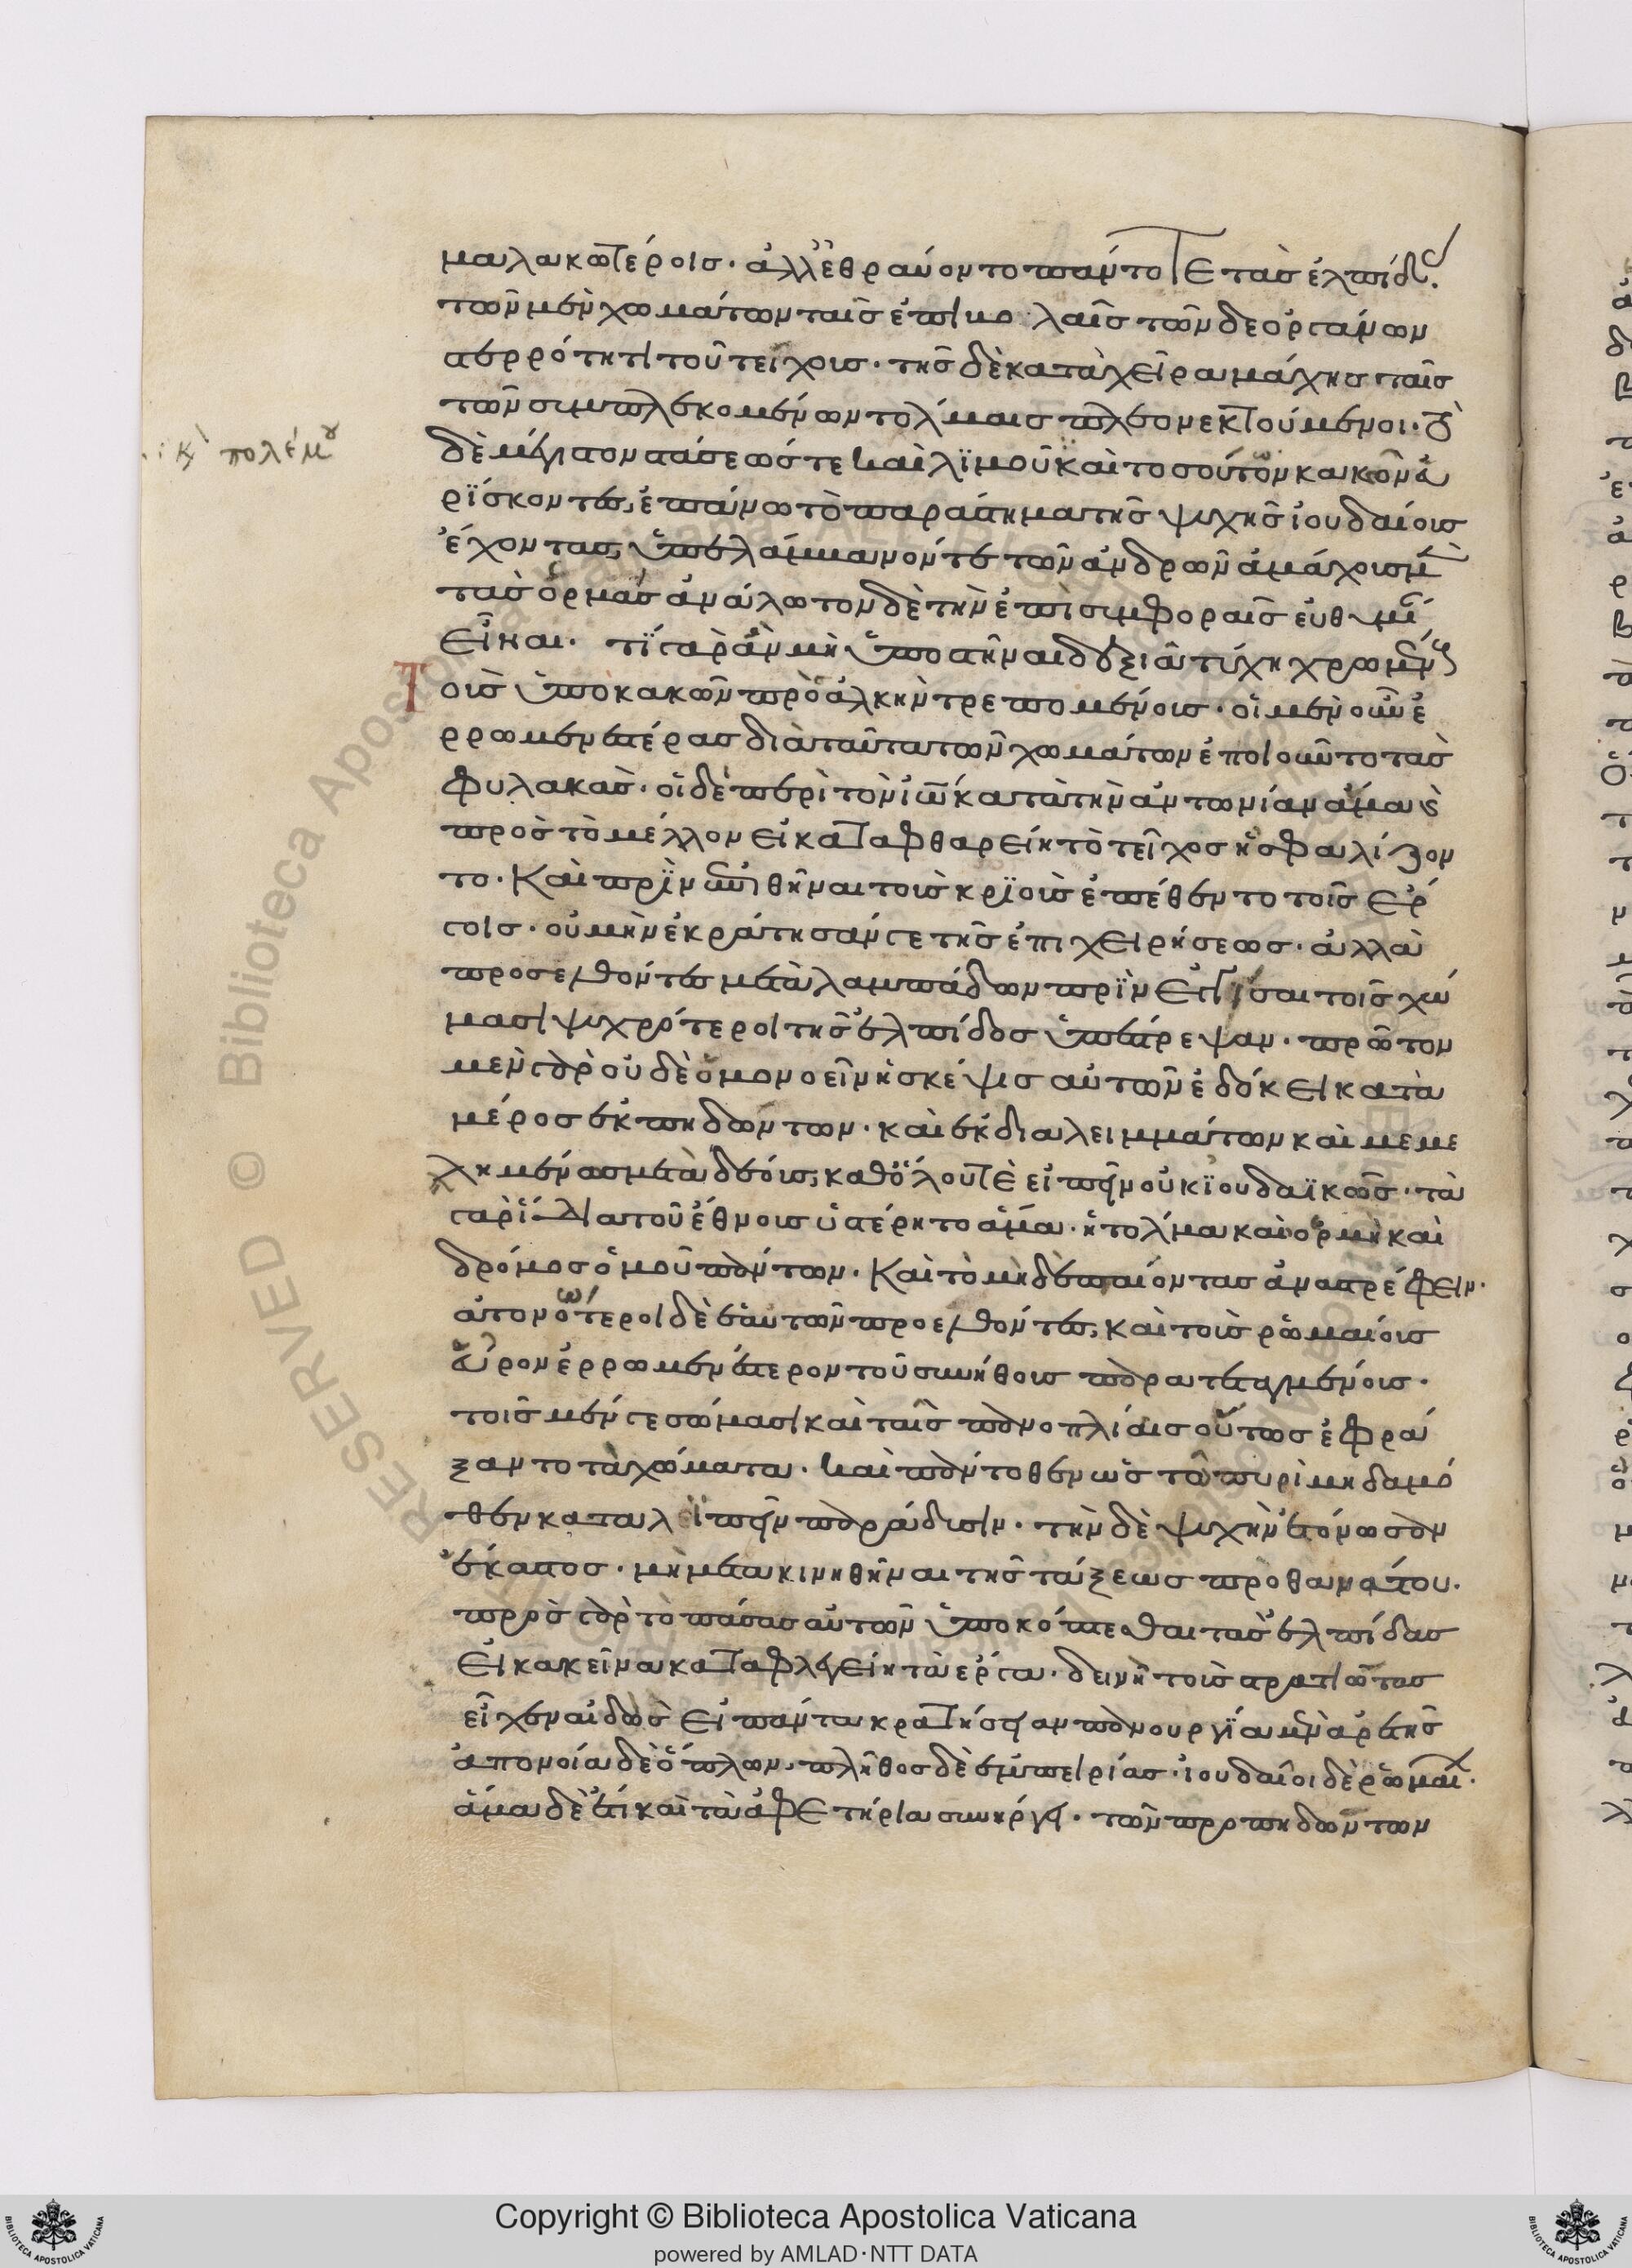 μαλακωτέροις· ἀλλ' ἐθραύοντο πάντοτε τὰσ ἐλπίδας.
τῶν μὲν χωμάτων ταῖσ ἐπιβουλαῖσ τῶν δε ὀργάνων
στερρότητι τοῦ τείχους· τῆσ δὲ κατὰ χεῖρα μάχησ ταῖσ
τῶν συμπλεκομένων τόλμαισ πλεονεκτούμενοι· τὸ
δὲ μέγιστον στάσεώσ τε καὶ λϊμοῦ καὶ τοσούτων κακῶν εὑ
ρΐσκοντες ἐπάνω τὸ παράστημα τῆσ ψυχῆσ ἰουδαίουσ
ἔχοντας, ὑπελάμμανόν τε τῶν ἀνδρῶν ἀμάχουσ μὲν
τὰσ ὁρμὰσ ἀνάλωτον δὲ τὴν ἐπὶ συμφοραῖσ εὐθυμίαν
εἶναι· τΐ γὰρ ἂν μὴ ὑποστῆναι δεξιᾶ τύχη χρωμένους
Τοὺσ ὑπὸ κακῶν πρὸσ ἀλκὴν τρεπομένουσ· οἱ μὲν οὖν ἐ
ρρωμενεστέρασ διὰ ταῦτα τῶν χωμάτων ἐποιοῦντο τὰσ
φυλακάσ· οἱ δὲ περὶ τὸν ἰω κατὰ τὴν ἀντωνίαν ἅμα καὶ
πρὸσ τὸ μέλλον εἰ καταφθαρείη τὸ τεῖχοσ ἠσφαλίζον
το· καὶ πρϊν θῆναι τοὺσ κρϊοὺσ ἐπέθεντο τοῖσ ἔρ
γοισ· οὐ μὴν ἐκράτησάν γε τῆσ ἐπιχειρήσεωσ· ἀλλὰ
προσελθόντεσ μετὰ λαμπάδων πρϊν ἐγγίσαι τοῖσ χώ
μασι ψυχρότεροι τῆσ ἐλπίδοσ ὑπέστρεψαν· πρῶτον
μὲν γὰρ οὐδὲ ὁμονοεῖν ἡ σκέψισ αὐτῶν ἐδόκει κατὰ
μέροσ ἐκπηδώντων· καὶ ἐκ διαλειμμάτων καὶ μεμε
λημένωσ μετὰ δέους, καθόλου τε εἰπεῖν οὐκ ϊουδαϊκῶσ· τὰ
γὰρ ἴδια τοῦ ἔθνουσ ὑστέρητο ἅμα· ἡ τόλμα καὶ ὁρμὴ καὶ
δρόμοσ ὁμοῦ πάντων· καὶ τὸ μηδὲ πταίοντασ ἀναστρέφειν·
ἀτονώτεροι δὲ ἑαυτῶν προελθόντες, καὶ τοὺσ ῥωμαίουσ
εὗρον ἐρρωμενέστερον τοῦ συνήθουσ παρατεταγμένουσ·
τοῖσ μέν γε σώμασι καὶ ταῖσ πανοπλίαισ οὕτωσ ἐφρά
ξαντο τὰ χώματα· καὶ πάντοθεν ὡσ τῶ πυρὶ μηδαμό
θεν καταλϊπεῖν παράδυσιν· τὴν δὲ ψυχὴν ἐτόνωσαν
ἕκαστοσ· μὴ μετακινηθῆναι τῆσ τάξεωσ πρὸ θανάτου·
πρὸσ γὰρ τὸ πάσασ αὐτῶν ὑποκόπτεσθαι τὰσ ἐλπίδασ
εἰ κἀκεῖνα καταφλεγείη τὰ ἔργα· δεινὴ τοὺσ στρατιώτασ
εἶχεν αἰδὼσ εἰ πάντα κρατήσειαν πανουργΐα μὲν ἀρετῆσ
ἀπόνοια δὲ ὅπλων· πλῆθοσ δὲ ἐμπειρίασ· ἰουδαῖοι δὲ ῥωμαίων·
ἅμα δὲ ἔτι καὶ τὰ ἀφετήρια συνήργει· τῶν προπηδώντων
κ(αὶ) πολέμου
Copyright © Biblioteca Apostolica Vaticana
powered by AMLAD·NTT DATA